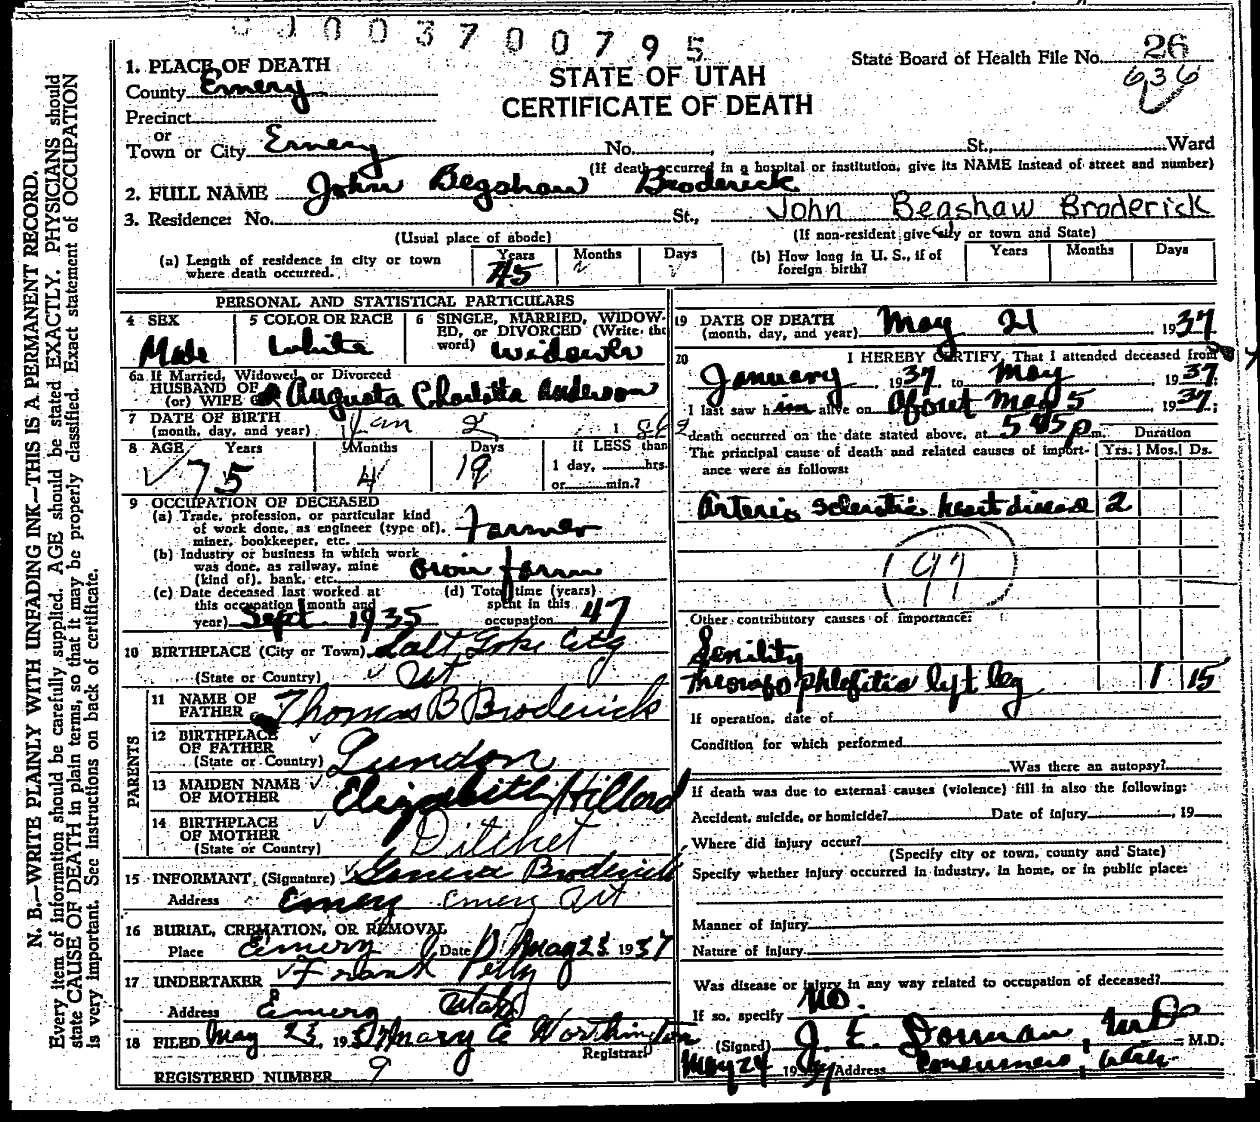 0003700795
State Board of Health File No. 26
636
STATE OF UTAH
CERTIFICATE OF DEATH
1. PLACE OF DEATH
County Emery
Precinct
or
Town or City Emery No. , St., Ward
(If death occurred in a hospital or institution, give its NAME instead of street and number)
2. FULL NAME John Begshaw Broderick
3. Residence: No. St., John Beashaw Broderick
(Usual place of abode) (If non-resident give city or town and State)
(a) Length of residence in city or town where death occurred. Years 75 Months Days
(b) How long in U. S., if of foreign birth? Years Months Days
PERSONAL AND STATISTICAL PARTICULARS
4 SEX Male
5 COLOR OR RACE White
6 SINGLE, MARRIED, WIDOWED, or DIVORCED (Write the word) Widower
6a If Married, Widowed, or Divorced
HUSBAND OF
(or) WIFE OF Augusta Charlotta Anderson
7 DATE OF BIRTH
(month, day, and year) Jan 2 1862
8 AGE Years 75 Months 4 Days 19 If LESS than
1 day, hrs.
or min.?
9 OCCUPATION OF DECEASED
(a) Trade, profession, or particular kind
of work done, as engineer (type of),
miner, bookkeeper, etc. Farmer
(b) Industry or business in which work
was done, as railway, mine
(kind of), bank, etc. Own farm
(c) Date deceased last worked at
this occupation (month and
year) Sept 1935
(d) Total time (years)
spent in this
occupation 47
10 BIRTHPLACE (City or Town) Salt Lake City
(State or Country) Ut
PARENTS
11 NAME OF
FATHER Thomas B Broderick
12 BIRTHPLACE
OF FATHER
(State or Country) Lundon
13 MAIDEN NAME
OF MOTHER Elizabeth Hillord
14 BIRTHPLACE
OF MOTHER
(State or Country) Ditchet
15 INFORMANT (Signature) Broderick
Address Emery Emery Ut
16 BURIAL, CREMATION, OR REMOVAL
Place Emery Date May 23 1937
17 UNDERTAKER Frank Petty
Address Emery Utah
18 FILED May 23, 1937 Mary E Worthington
Registrar
REGISTERED NUMBER 9
19 DATE OF DEATH
(month, day, and year) May 21 1937
20 I HEREBY CERTIFY, That I attended deceased from
January, 1937 to May, 1937;
I last saw him alive on About May 5 1937;
death occurred on the date stated above, at 5 45 p m.
The principal cause of death and related causes of importance were as follows:
Duration
Yrs. Mos. Ds.
Arterio sclerotic heart disease 2
97
Other contributory causes of importance:
Senility
Thrombophlebitis left leg 1 15
If operation, date of
Condition for which performed
Was there an autopsy?
If death was due to external causes (violence) fill in also the following:
Accident, suicide, or homicide? Date of injury , 19
Where did injury occur?
(Specify city or town, county and State)
Specify whether injury occurred in industry, in home, or in public place:
Manner of injury
Nature of injury
Was disease or injury in any way related to occupation of deceased?
If so, specify No.
(Signed) J. E. Dorman M D , M.D.
May 24 1937 Address Consumers, Utah
N. B.—WRITE PLAINLY WITH UNFADING INK—THIS IS A PERMANENT RECORD.
Every item of information should be carefully supplied. AGE should be stated EXACTLY. PHYSICIANS should
state CAUSE OF DEATH in plain terms, so that it may be properly classified. Exact statement of OCCUPATION
is very important. See instructions on back of certificate.